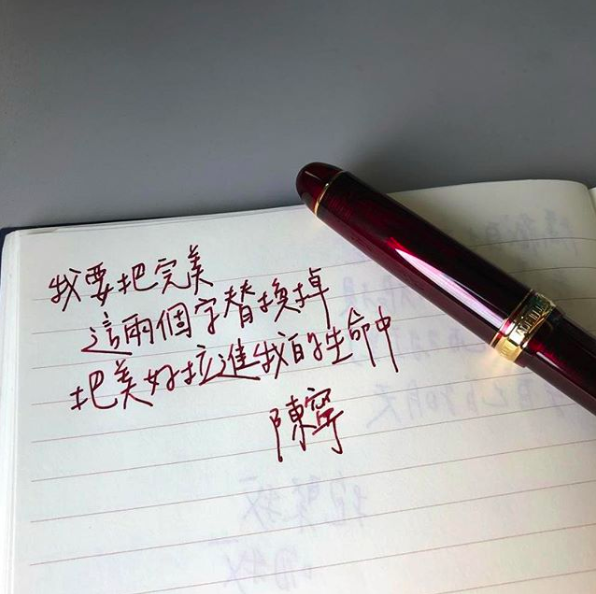 我要把完美
這兩個字替換掉
把美好拉進我的生命中
陳寧